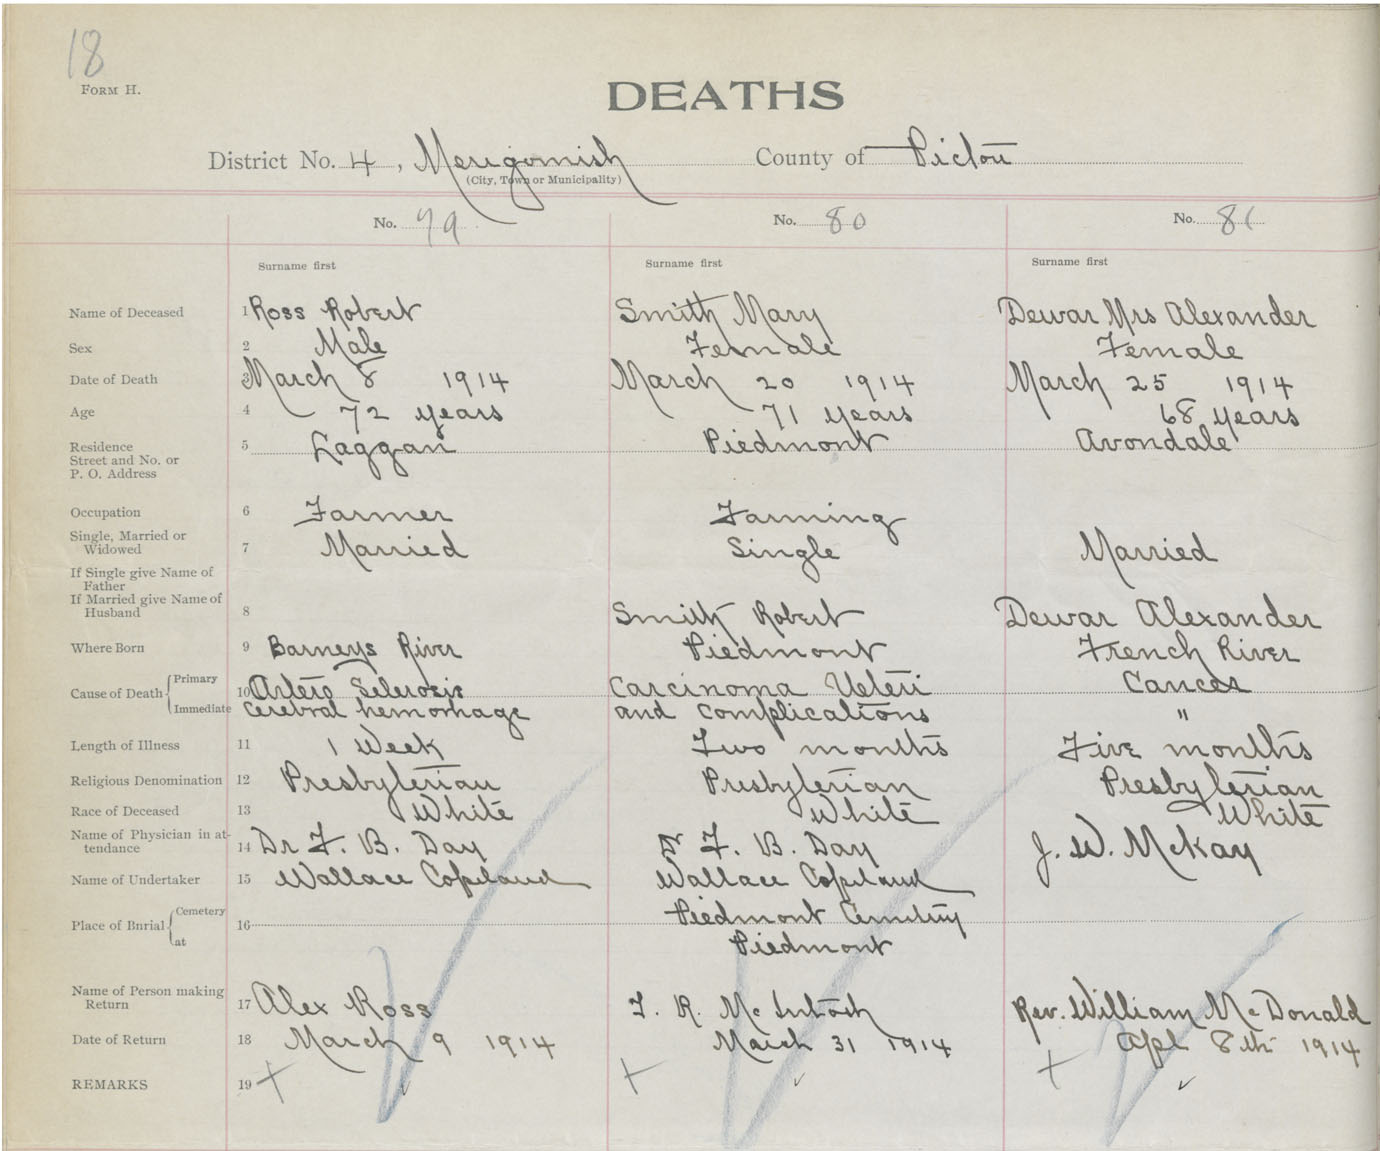 18
FORM H.
DEATHS
District No. 4, Merigomish County of Pictou
(City, Town or Municipality)
No. 79 No. 80 No. 81
Surname first Surname first Surname first
Name of Deceased 1 Ross Robert Smith Mary Dewar Mrs Alexander
Sex 2 Male Female Female
Date of Death 3 March 8 1914 March 20 1914 March 25 1914
Age 4 72 years 71 years 68 years
Residence 5 Laggan Piedmont Avondale
Street and No. or
P. O. Address
Occupation 6 Farmer Farming
Single, Married or
Widowed 7 Married Single Married
If Single give Name of
Father
If Married give Name of
Husband 8 Smith Robert Dewar Alexander
Where Born 9 Barneys River Piedmont French River
Cause of Death { Primary 10 Artero Sclerosis Carcinoma Uteri Cancer
Immediate Cerebral hemorhage and complications "
Length of Illness 11 1 Week Two months Five months
Religious Denomination 12 Presbyterian Presbyterian Presbyterian
Race of Deceased 13 White White White
Name of Physician in at-
tendance 14 Dr F. B. Day Dr F. B. Day J. W. McKay
Name of Undertaker 15 Wallace Copeland Wallace Copeland
Place of Burial { Cemetery 16 Piedmont Cemetery
at Piedmont
Name of Person making
Return 17 Alex Ross F. R. McIntosh Rev. William McDonald
Date of Return 18 March 9 1914 March 31 1914 Apl 8th 1914
REMARKS 19